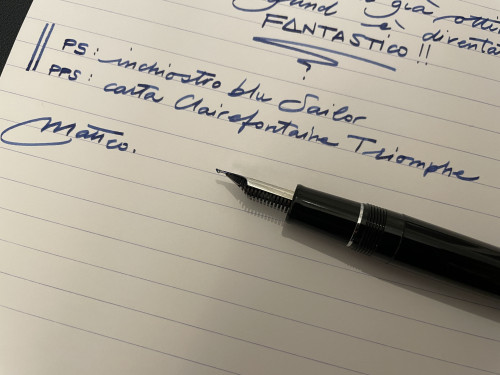 già
è diventa
FANTASTICO !!
PS: inchiostro blu Sailor
PPS: carta Clairefontaine Triomphe
Matteo.